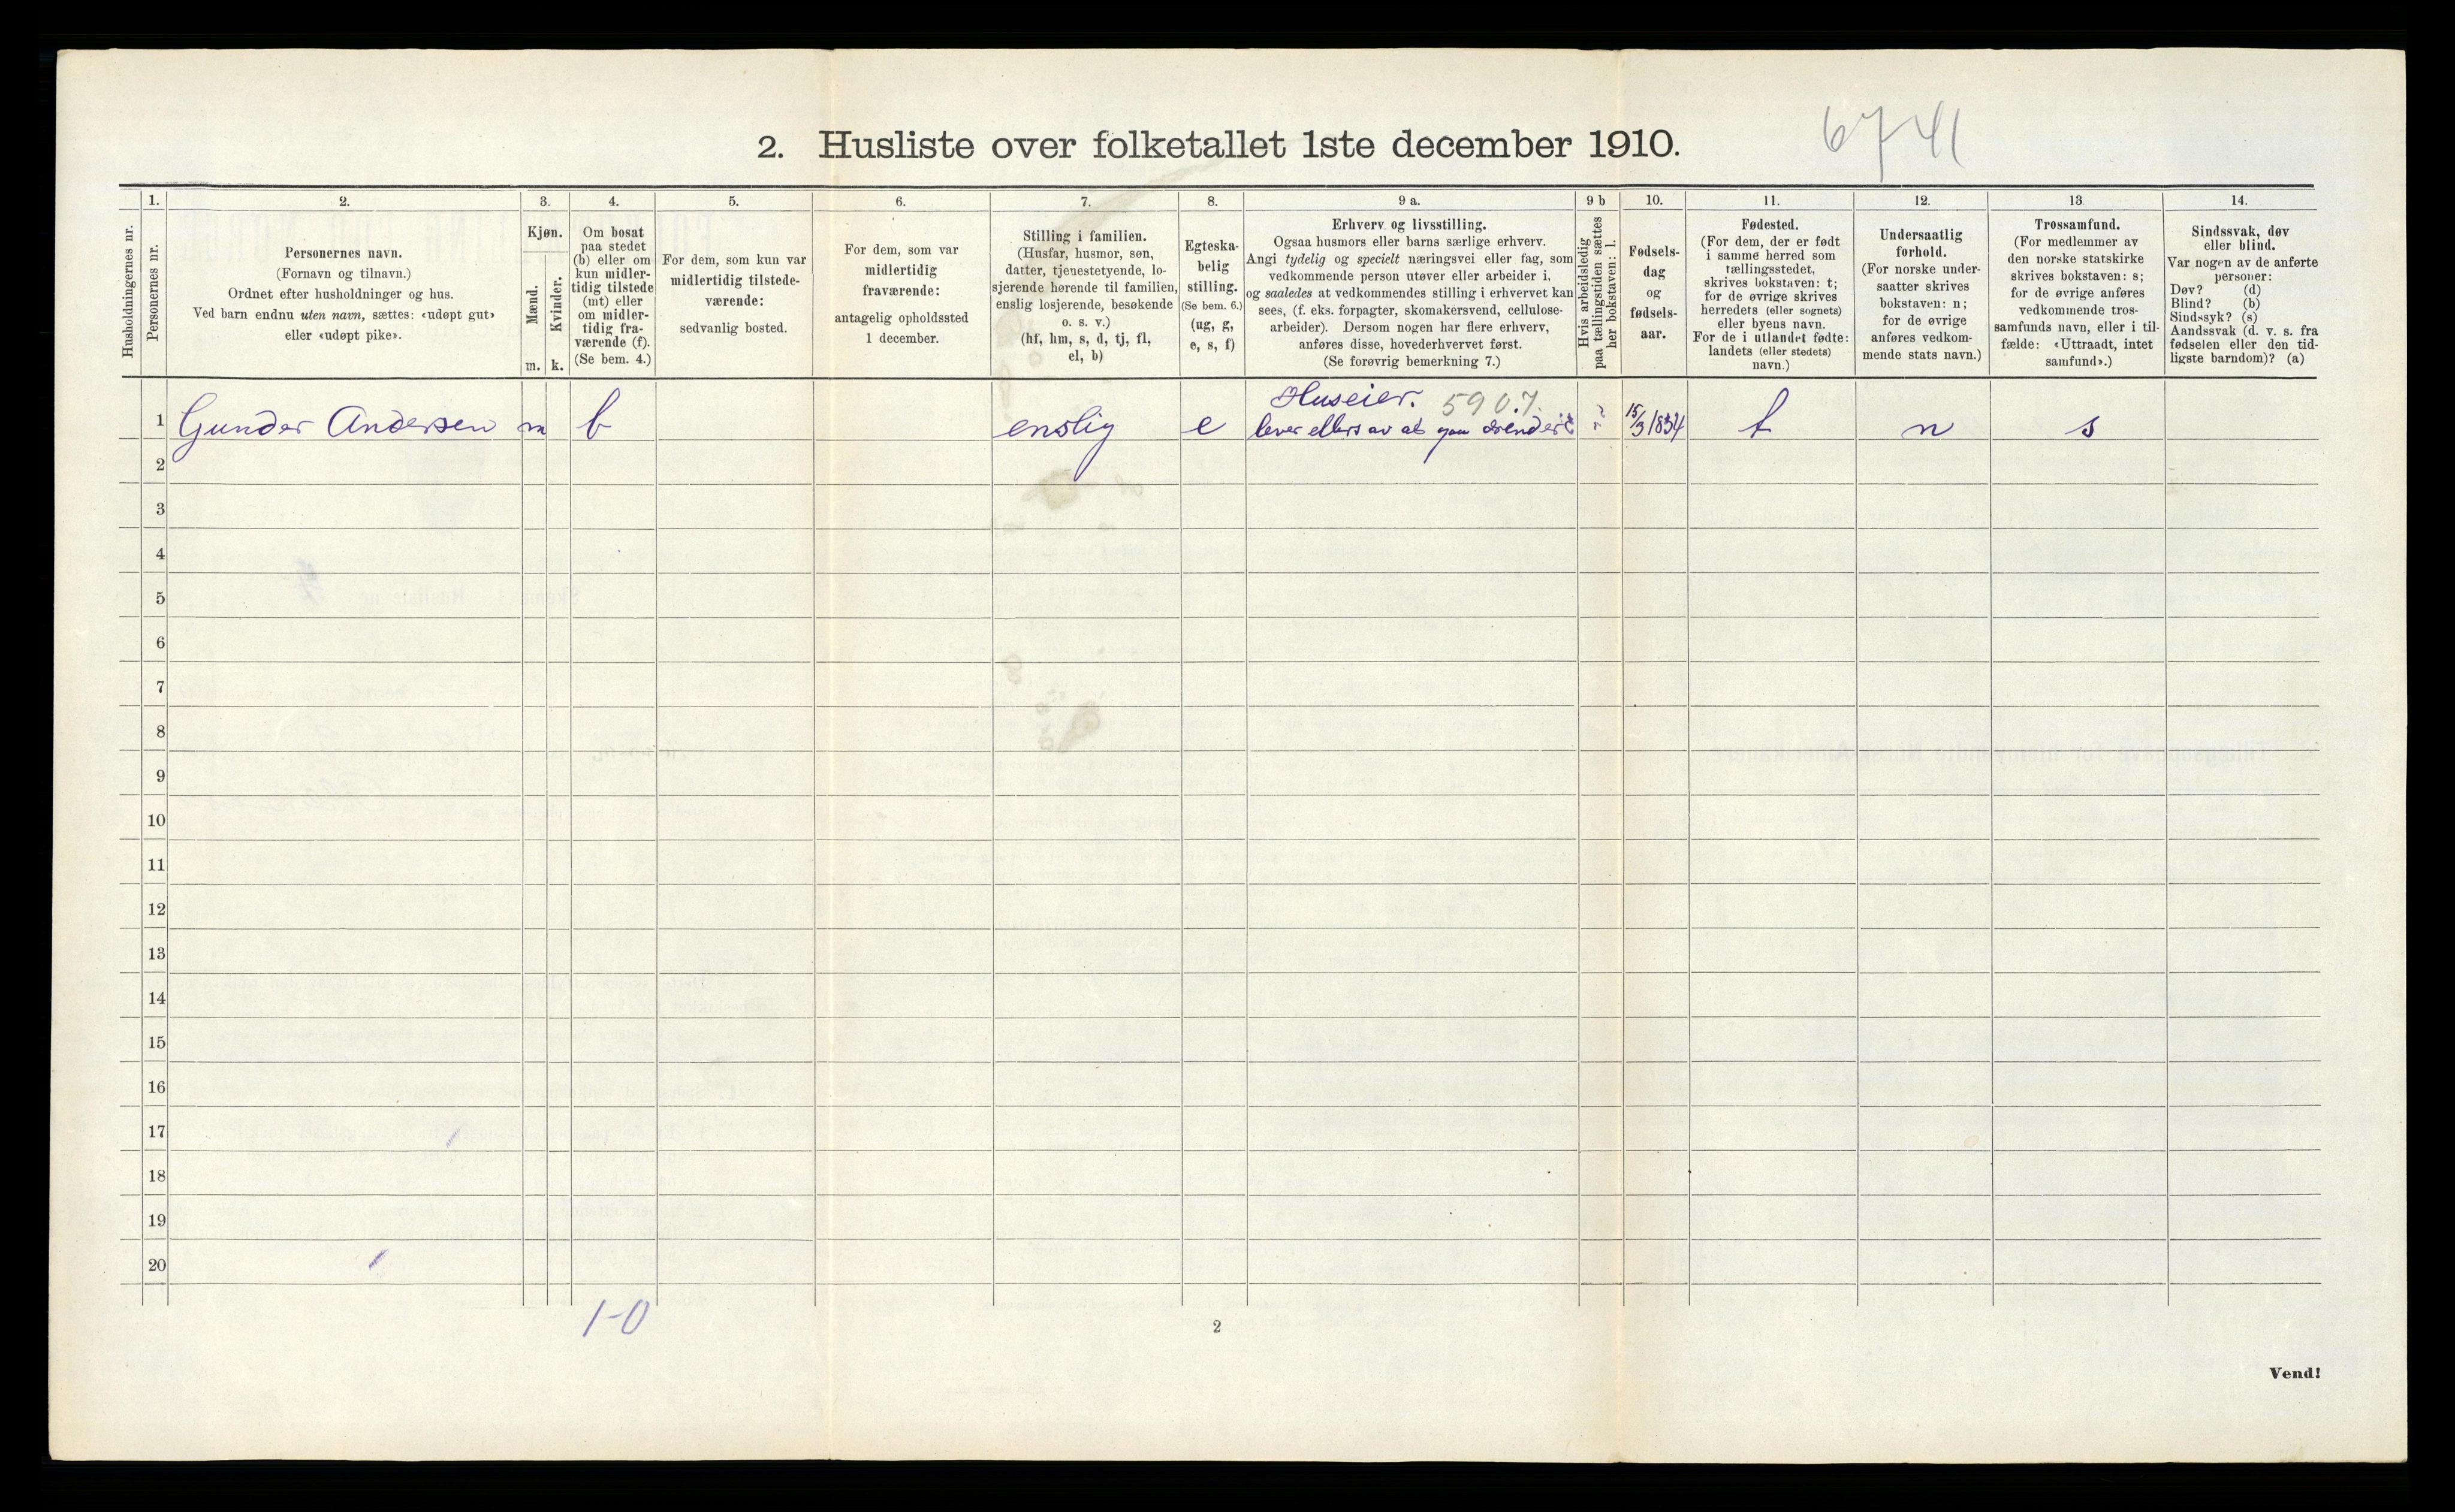 6741
2. Husliste over folketallet 1ste december 1910.
Husholdningernes nr.
1.
Personernes nr.
2.
Personernes navn.
(Fornavn og tilnavn.)
Ordnet efter husholdninger og hus.
Ved barn endnu uten navn, sættes: «udøpt gut»
eller «udøpt pike».
3.
Kjøn.
Mænd.
Kvinder.
m. k.
4.
Om bosat
paa stedet
(b) eller om
kun midler-
tidig tilstede
(mt) eller
om midler-
tidig fra-
værende (f).
(Se bem. 4.)
5.
For dem, som kun var
midlertidig tilstede-
værende:
sedvanlig bosted.
6.
For dem, som var
midlertidig
fraværende:
antagelig opholdssted
1 december.
7.
Stilling i familien.
(Husfar, husmor, søn,
datter, tjenestetyende, lo-
sjerende hørende til familien,
enslig losjerende, besøkende
o. s. v.)
(hf, hm, s, d, tj, fl,
el, b)
8.
Egteska-
belig
stilling.
(Se bem. 6.)
(ug, g,
e, s, f)
9 a.
Erhverv og livsstilling.
Ogsaa husmors eller barns særlige erhverv.
Angi tydelig og specielt næringsvei eller fag, som
vedkommende person utøver eller arbeider i,
og saaledes at vedkommendes stilling i erhvervet kan
sees, (f. eks. forpagter, skomakersvend, cellulose-
arbeider). Dersom nogen har flere erhverv,
anføres disse, hovederhvervet først.
(Se forøvrig bemerkning 7.)
9 b
Hvis arbeidsledig
paa tællingstiden sættes
her bokstaven: l.
10.
Fødsels-
dag
og
fødsels-
aar.
11.
Fødested.
(For dem, der er født
i samme herred som
tællingsstedet,
skrives bokstaven: t;
for de øvrige skrives
herredets (eller sognets)
eller byens navn.
For de i utlandet fødte:
landets (eller stedets)
navn.)
12.
Undersaatlig
forhold.
(For norske under-
saatter skrives
bokstaven: n;
for de øvrige
anføres vedkom-
mende stats navn.)
13.
Trossamfund.
(For medlemmer av
den norske statskirke
skrives bokstaven: s;
for de øvrige anføres
vedkommende tros-
samfunds navn, eller i til-
fælde: «Uttraadt, intet
samfund».)
14.
Sindssvak, døv
eller blind.
Var nogen av de anførte
personer:
Døv? (d)
Blind? (b)
Sindssyk? (s)
Aandssvak (d. v. s. fra
fødselen eller den tid-
ligste barndom)? (a)
Huseier. 590.7.
1 Gunder Andersen m b enslig e lever ellers av at gaa ærender 15/3 1834 t n s
2
3
4
5
6
7
8
9
10
11
12
13
14
15
16
17
18
19
20
1-0
2
Vend!